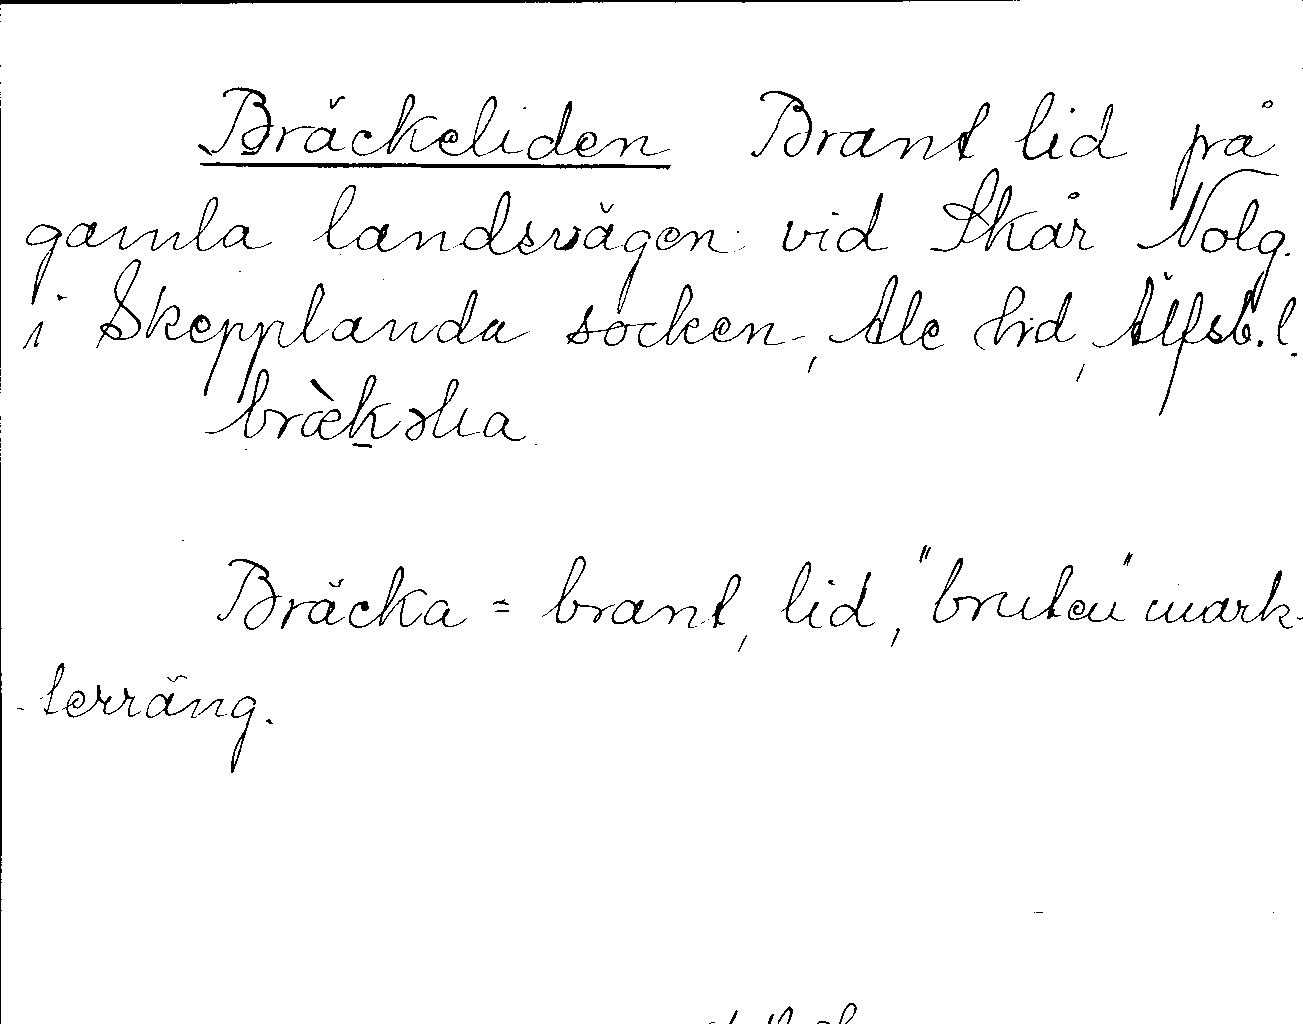 Bräckeliden Brant lid på
gamla landsvägen vid Skår Nolg.
i Skepplanda socken, Ale hd, Älfsb. l.
Bräcka = brant, lid, "bruten" mark-
terräng.